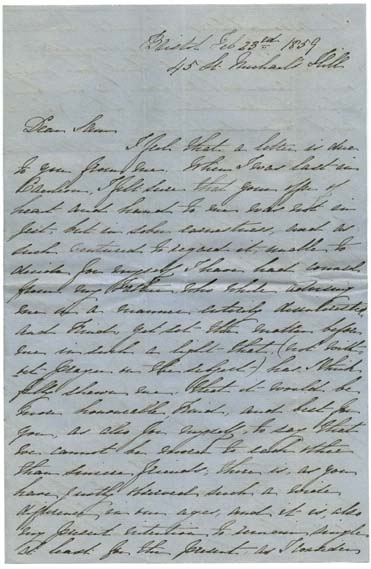 Bristol Feb 23rd 1859
45 St. Michael's Hill
Dear Sam
I feel that a letter is due
to you from me. When I was last in
I felt sure that your offer of
heart and hand to me was not in
jest but in sober earnestness, and as
such continued to regard it unable to
decide for myself I have had counsel
from my Father who while advising
me in a manner entirely disinterested
and kind, yet set the matter before
me in such a light that (not with-
out prayer on the subject) has I think
fully shewn me that it would be
more honourable kind, and best for
you, as also for myself, to say that
we cannot be nearer to each other
than sincere friends, there is, as you
have justly observed such a wide
difference in our ages, and it is also
my present intention to remain single
at least for the present as I consider